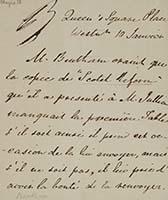 Queen's Square Place
Westmr 10 Janvier
M. Bentham craint que
la copie de "Scotch Reform"
qu'il a presenté à M.
manquant la premiere Table
s'il soit ainsi il prend cet oc-
casion de la lui envoyer, mais
s'il ne soit pas, il lui prie d'
avoir la bonté de la renvoyer.